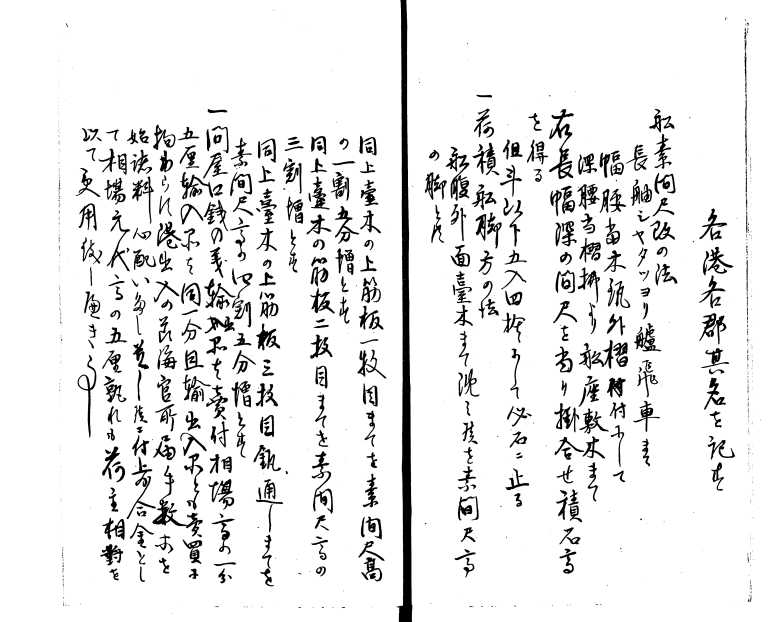 各港各郡其名を記す
船素間尺改の法
長舳シヤタツヨリ艫飛車まて
幅腰当木瓬外櫂付にして
深腰当櫂挾より船座敷木まて
右長幅深の間尺を当り掛合せ積石高
を得る
但斗以下五入四捨にして必石ニ止る
一荷積船脚方の法
船腹外面臺木まて沈ミ候を素間尺高
の脚とす
同上臺木の上筋板一枚目まてを素間尺高
の一割五分増とす
同上臺木の筋板二枚目まてを素間尺高の
三割増とす
同上臺木の上筋板三枚目釻通しまてを
素間尺高の四割五分増とす
一問屋口銭の義輸出品は賣付相場高の一分
五厘輸入品は同一分且輸出入品とも賣買に
拘わらす港出入の節海官所届手数等を
始諸料心配いたし候ニ付上前合金とし
て相場元代高の五厘孰れも荷主相對を
以て更用致し値き事